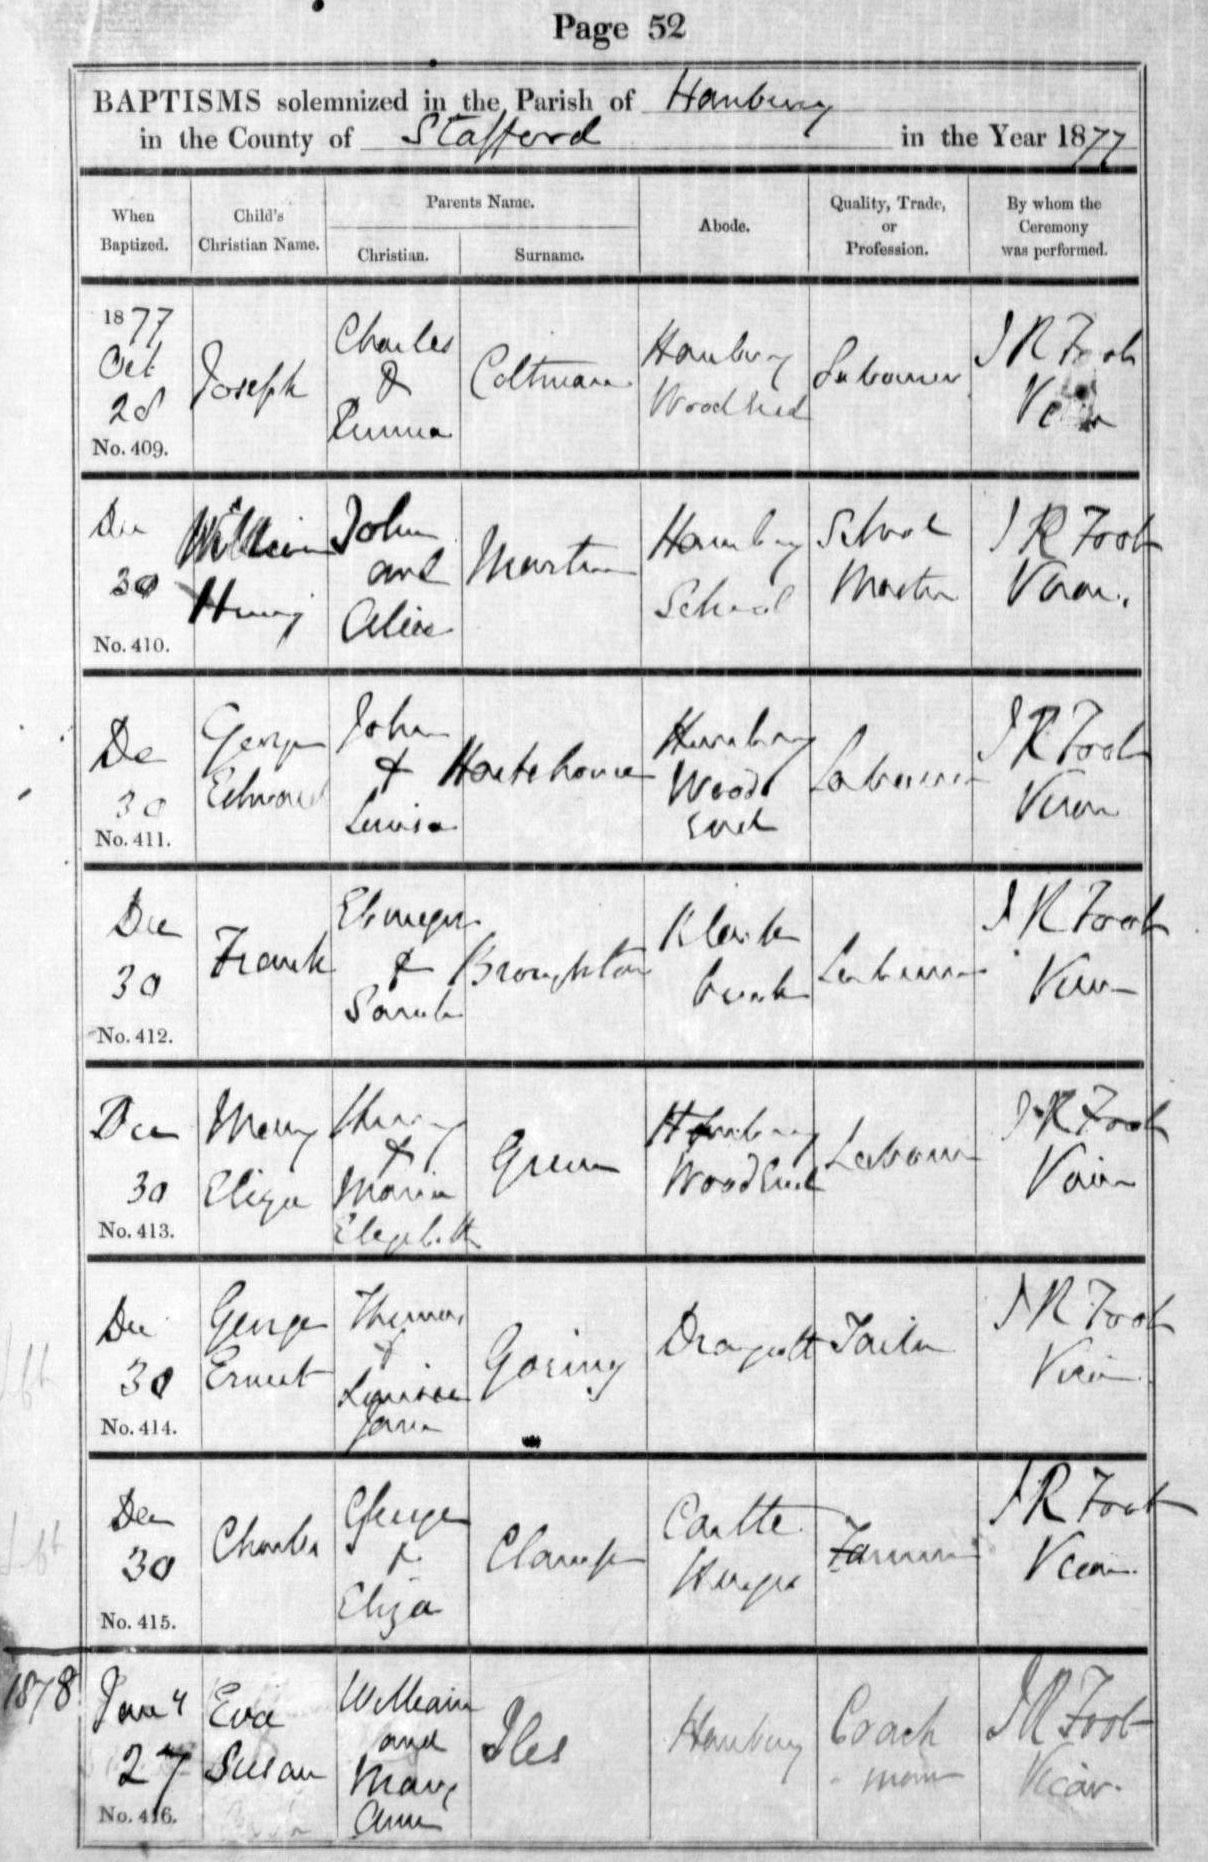 Page 52
BAPTISMS solemnized in the Parish of Hanbury
in the County of Stafford in the Year 1877
When Baptized.
Child's Christian Name.
Parents Name.
Christian.
Surname.
Abode.
Quality, Trade, or Profession.
By whom the Ceremony was performed.
1877
Oct
28
No. 409.
Joseph
Charles
&
Emma
Coltman
Hanbury
Wood End
Labourer
J R Foot
Vicar
Dec
30
No. 410.
William
Henry
John
and
Alice
Martin
Hanbury
School
School
Master
J R Foot
Vicar.
Dec
30
No. 411.
George
Edward
John
&
Louisa
Hanbury
Wood
End
Labourer
J R Foot
Vicar
Dec
30
No. 412.
Frank
Ebenezer
&
Sarah
Broughton
Labourer
J R Foot
Vicar
Dec
30
No. 413.
Mary
Eliza
Henry
&
Maria
Elizabeth
Green
Hanbury
Wood End
Labourer
J R Foot
Vicar
Dec
30
No. 414.
George
Ernest
Thomas
&
Louisa
Jane
Goring
Draycott
Tailor
J R Foot
Vicar
Dec
30
No. 415.
Charles
George
&
Eliza
Clamp
Castle
Hayes
Farmer
J R Foot
Vicar
1878
Jany
27
No. 416.
Eva
Susan
William
and
Mary
Ann
Iles
Hanbury
Coach
man
J R Foot
Vicar.